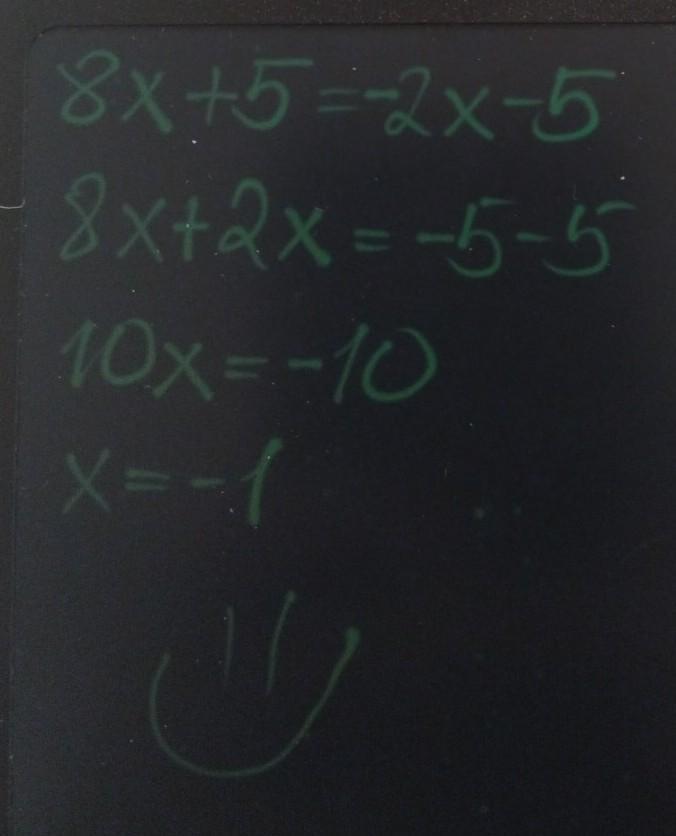 8x+5=-2x-5
8x+2x=-5-5
10x=-10
x=-1